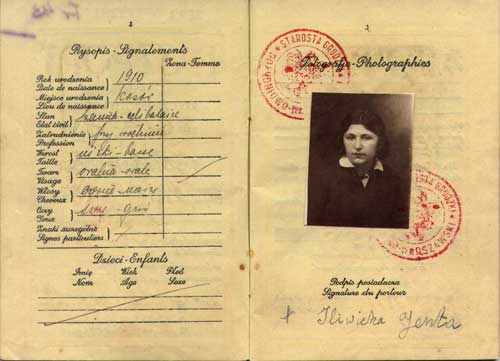 2
Rysopis - Signalements
Żona - Femme
Rok urodzenia
Date de naissance
1910
Miejsce urodzenia
Lieu de naissance
Stan
Etat civil
Zatrudnienie
Profession
przy rodzinie
Wzrost
Taille
niski - basse
Twarz
Visage
owalna - ovale
Włosy
Cheveux
Oczy
Yeux
szare - gris
Znaki szczególne
Signes particuliers
Dzieci - Enfants
Imię Wiek Płeć
Nom Age Sexe
3
STAROSTA GRODZKI
Fotografje - Photographies
STAROSTA GRODZKI
Podpis posiadacza
Signature du porteur
Iliwicka Jenta